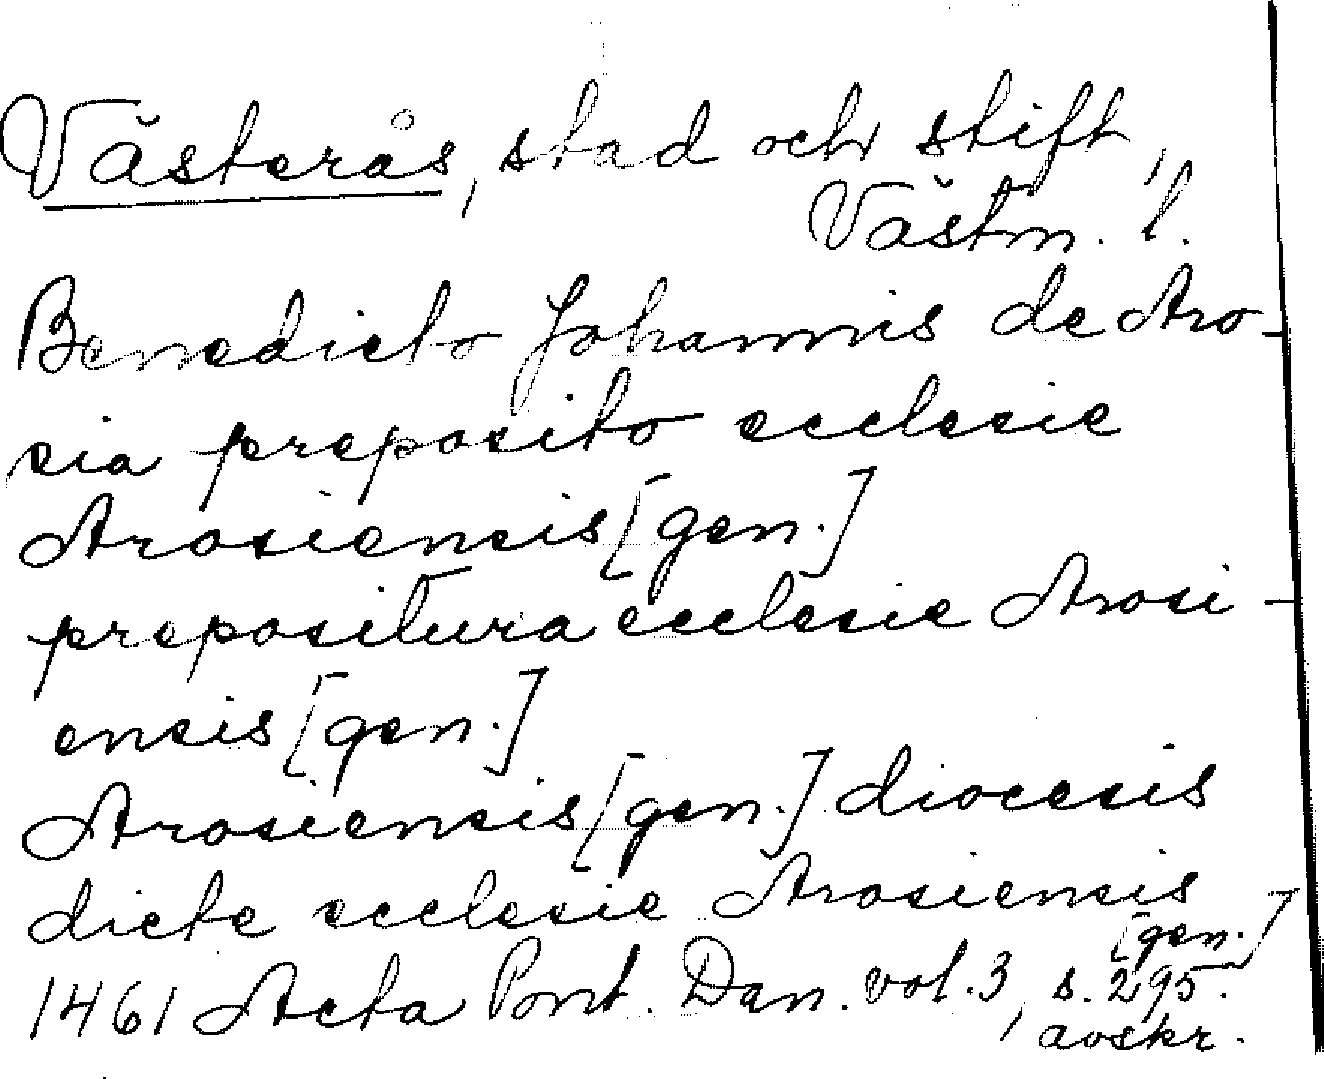 Västerås, stad och stift,
Västm. l.
Benedicto Johannis de Aro-
sia preposito ecclesie
Arosiensis [gen.]
prepositura ecclesie Arosi-
ensis [gen.]
Arosiensis [gen.] diocesis
dicte ecclesie Arosiensis
[gen.]
1461 Acta Pont. Dan. vol. 3, s. 295.
avskr.